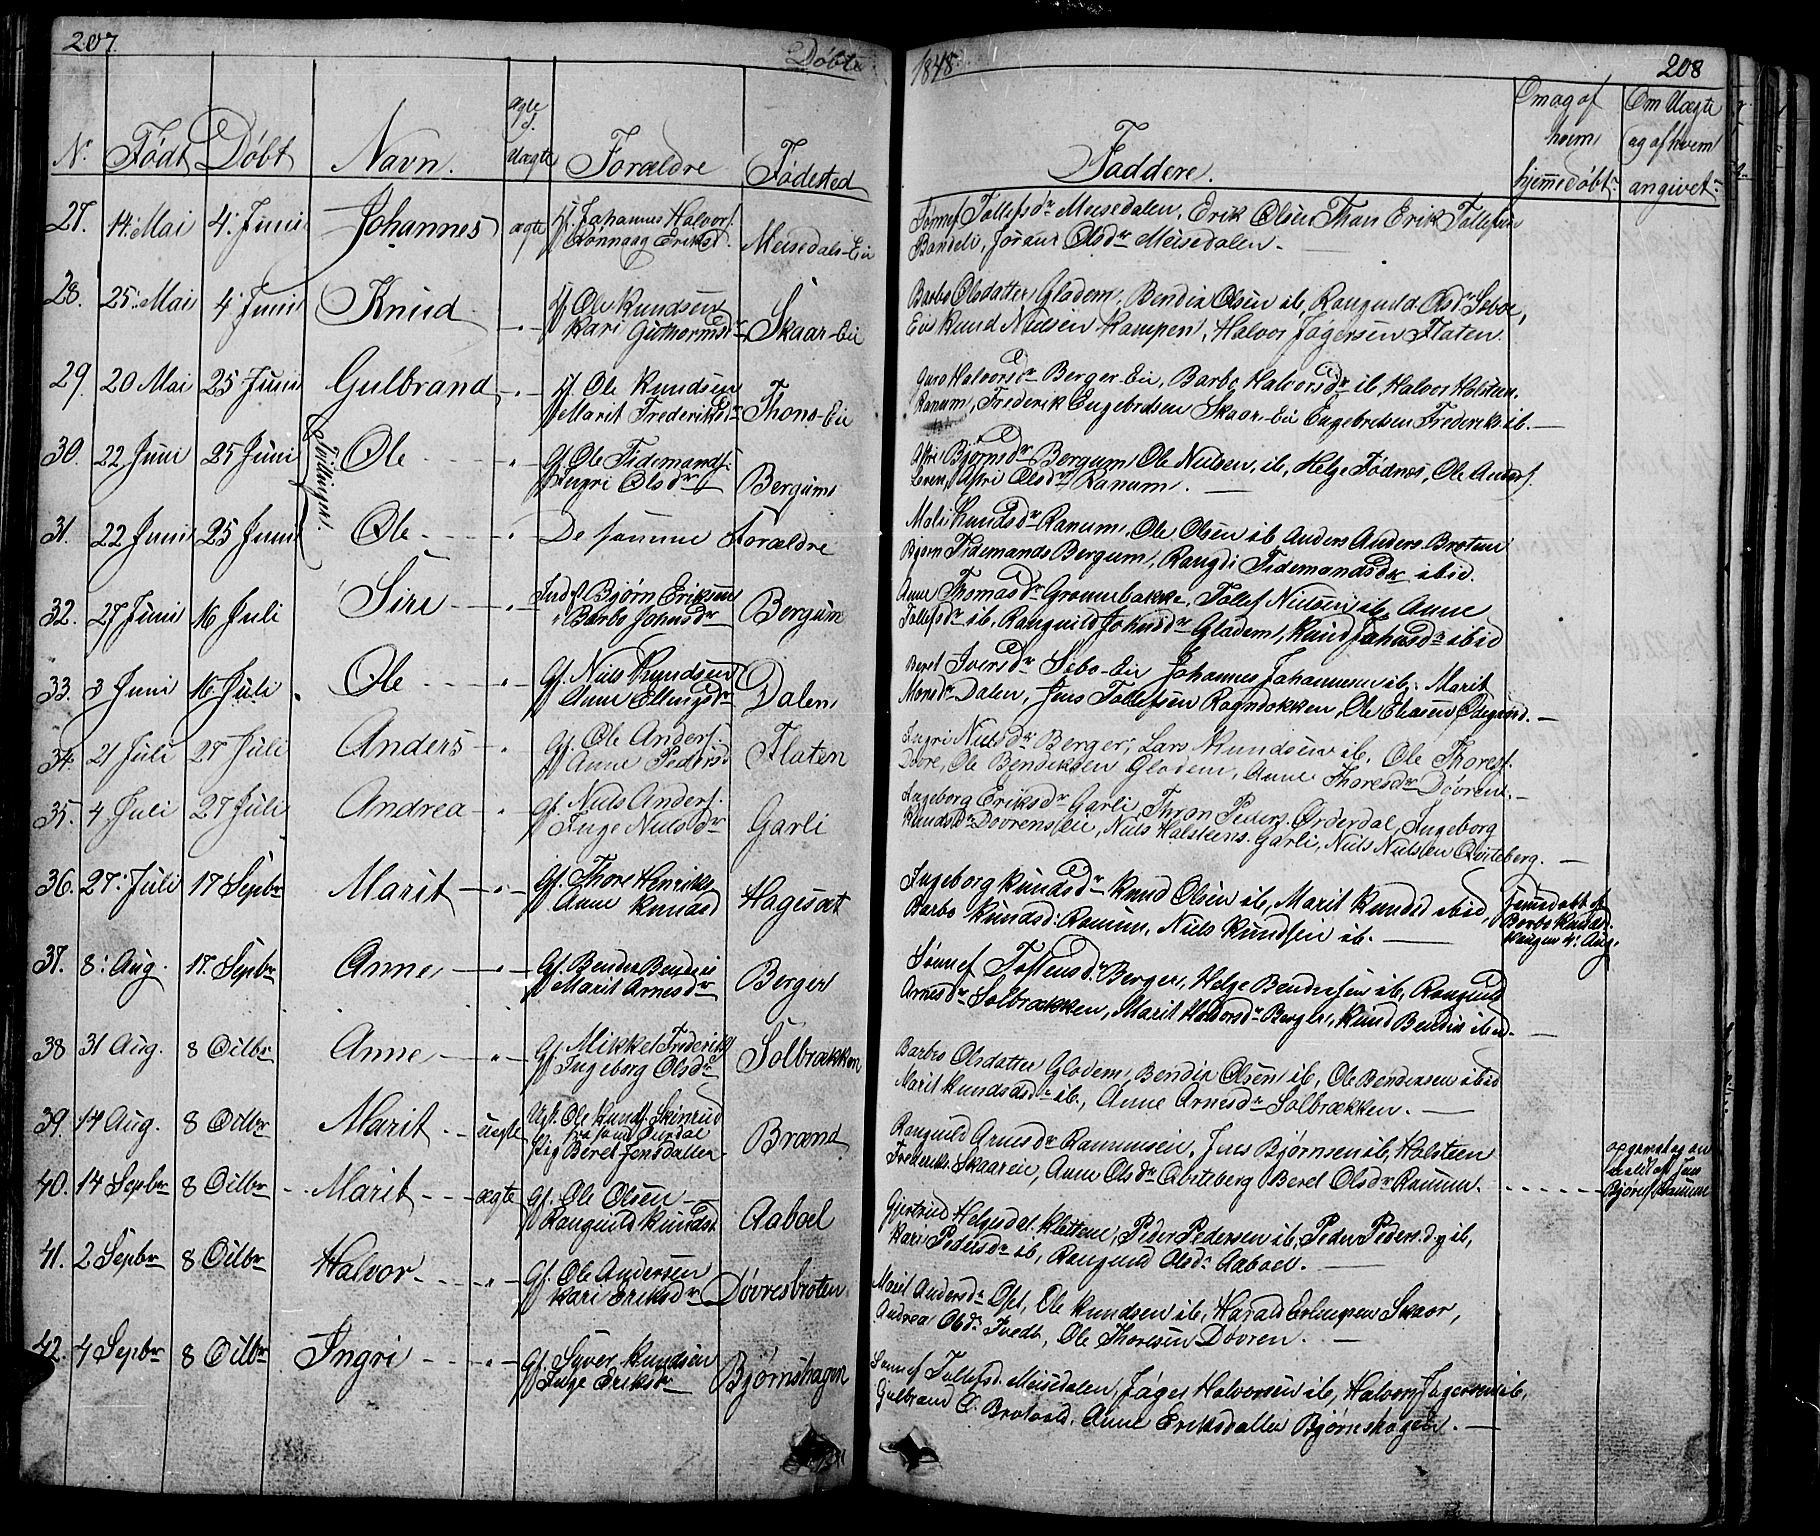 207.
Døbte
1848.
208
N. Født Døbt Navn. ægte ell. uægte Forældre Fødested Faddere. Om og af hvem hjemmedøbt. Om Uægte og af hvem angivet.
27. 14. Mai 4. Juni Johannes ægte Gf. Johannes Halvors. Rønnaug Eriksd. Meisedals-Eie
Sønnef Tollefsdr Meisedalen, Erik Olsen Thon Erik Tollefsen
Bøndeli, Jøran Olsdr Meisedalen.
28. 25. Mai 4 Juni Knud Gf Ole Knudsen Kari Guthormsdr Skaar-Eie
Barbo Olsdatter Gladem, Bendix Olsen ib, Ranguld Olsdr Sebo,
Eie Knud Nielsen Kampen, Halvor Jøgersen Flaten.
29. 20 Mai 25 Juni Gulbrand Gf. Ole Knudsen Marit Frederiksdr Thons-Eie
Guro Halvorsdr Berger Eie, Barbo Halvorsdr ib, Halvor Halsten.
Ranum, Frederik Engebretsen Skaar-Eie Engebretsen Frederiks ib.
30. 22 Juni 25 Juni Tvillinger. Ole Gf Ole Tidemands. Ingri Olsdr Bergum
Astri Bjørnsdr Bergum, Ole Nielsen, ib, Helge Fødnes, Ole Anders.
Astri Olsdr Ranum.
31. 22 Juni 25 Juni Ole De samme Forældre
Moli Knudsdr Ranum, Ole Olsen ib Anders Anders. Broten
Bjørn Tidemands Bergum, Rangdi Tidemandsdr ibid.
32. 27 Juni 16 Juli Siri Inds. Bjørn Eriksen Barbo Johnsdr Bergum
Anne Thomasdr Grønnebakke, Tollef Nielsen ib, Anne
Tollefsdr ib, Ranguild Johnsdr Gladem, Knud Johnsdr ibid
33. 3 Juni 16 Juli Ole Gf. Niels Knudsen Anne Ellingsdr Dalen
Beret Iversdr Sebo-Eie Johannes Johannesen ib. Marit
Monsdr Dalen, Jens Tollefsen Rogndokken, Ole Eliasen Ødegaard.
34. 21 Juli 27 Juli Anders Gf. Ole Anders. Anne Pedersd Flaten
Ingri Nielsdr Berger, Lars Knudsen ib, Ole Thores.
Døvre, Ole Bendiksen Glodem, Anne Thoresdr Døvren.
35. 4. Juli 27 Juli Andrea Gf. Niels Anders. Inge Nielsdr Garli
Ingeborg Eriksdr Garli, Thron Peders. Ørderdal, Ingeborg
Knudsdr Dovrenseie, Niels Halsteens. Garli, Niels Nielsen Qviteberg.
36. 27. Juli 17 Sepbr Marit Gf. Thore Henriks Anne Knudsd Hagesæt
Ingeborg Knudsdr Knud Olsen ib, Marit Knudsd ibid,
Barbo Knudsd. Ranum, Niels Knudsen ib.
hjemedøbt af Barbo Knudsd. 4. Aug.
37. 8. Aug. 17. Sepbr Anne Gf. Bendix Bendix Marit Arnesdr Berger
Sønnef Tostensdr Berger, Helge Bendixsen ib, Ranguild
Arnesdr Solbrækken, Marit Halvorsdr Berger, Knud Bendix ibid.
38 31 Aug. 8 Octbr Anne Gf. Mikkel Frederiks Ingeborg Olsdr Solbrækken
Barbro Olsdatter Glodem, Bendix Olsen ib, Ole Bendixsen ibid
Marit Knudsdr ib, Anne Arnesdr Solbrækken.
39. 14 Aug. 8 Octbr Marit uægte Ole Knuds. Skinrud Pig Beret Jensdatter Brænd
Ranguild Arnesdr Ranumseie, Jens Bjørnsen ib, Halsteen
Frederiks. Skaareie, Anne Olsdr Qviteberg Beret Olsdr Ranum.
opgivet og anmeldt af Jens Bjørns. Ranum
40. 14 Sepbr 8 Octbr Marit ægte Gf. Ole Olsen Ranguild Knudsd. Aaboel
Gjertrud Helgesdat. Kletten, Peder Pedersen ib, Peder Peders. d.y ib,
Kari Pedersdr ib, Ranguid Olsdr Aaboel.
41. 2 Sepbr 8 Octbr Halvor Gf. Ole Andersen Kari Eriksdr Døvresbroten
Marit Andersdr Oset, Ole Knudsen ib, Harald Erlingsen Skaar,
Andrea Olsdr Tvedt, Ole Thoresen Døvren.
42. 4 Sepbr 8 Octbr Ingri Gf. Syver Knudsen Inge Eriksdr Bjørnshagen
Sønnef Tollefsd. Meisedalen, Jøger Halvorsen ib, Halvor Jøgersen ib,
Gulbrand O. Brotvold, Anne Eriksdatter Bjørnshagen.